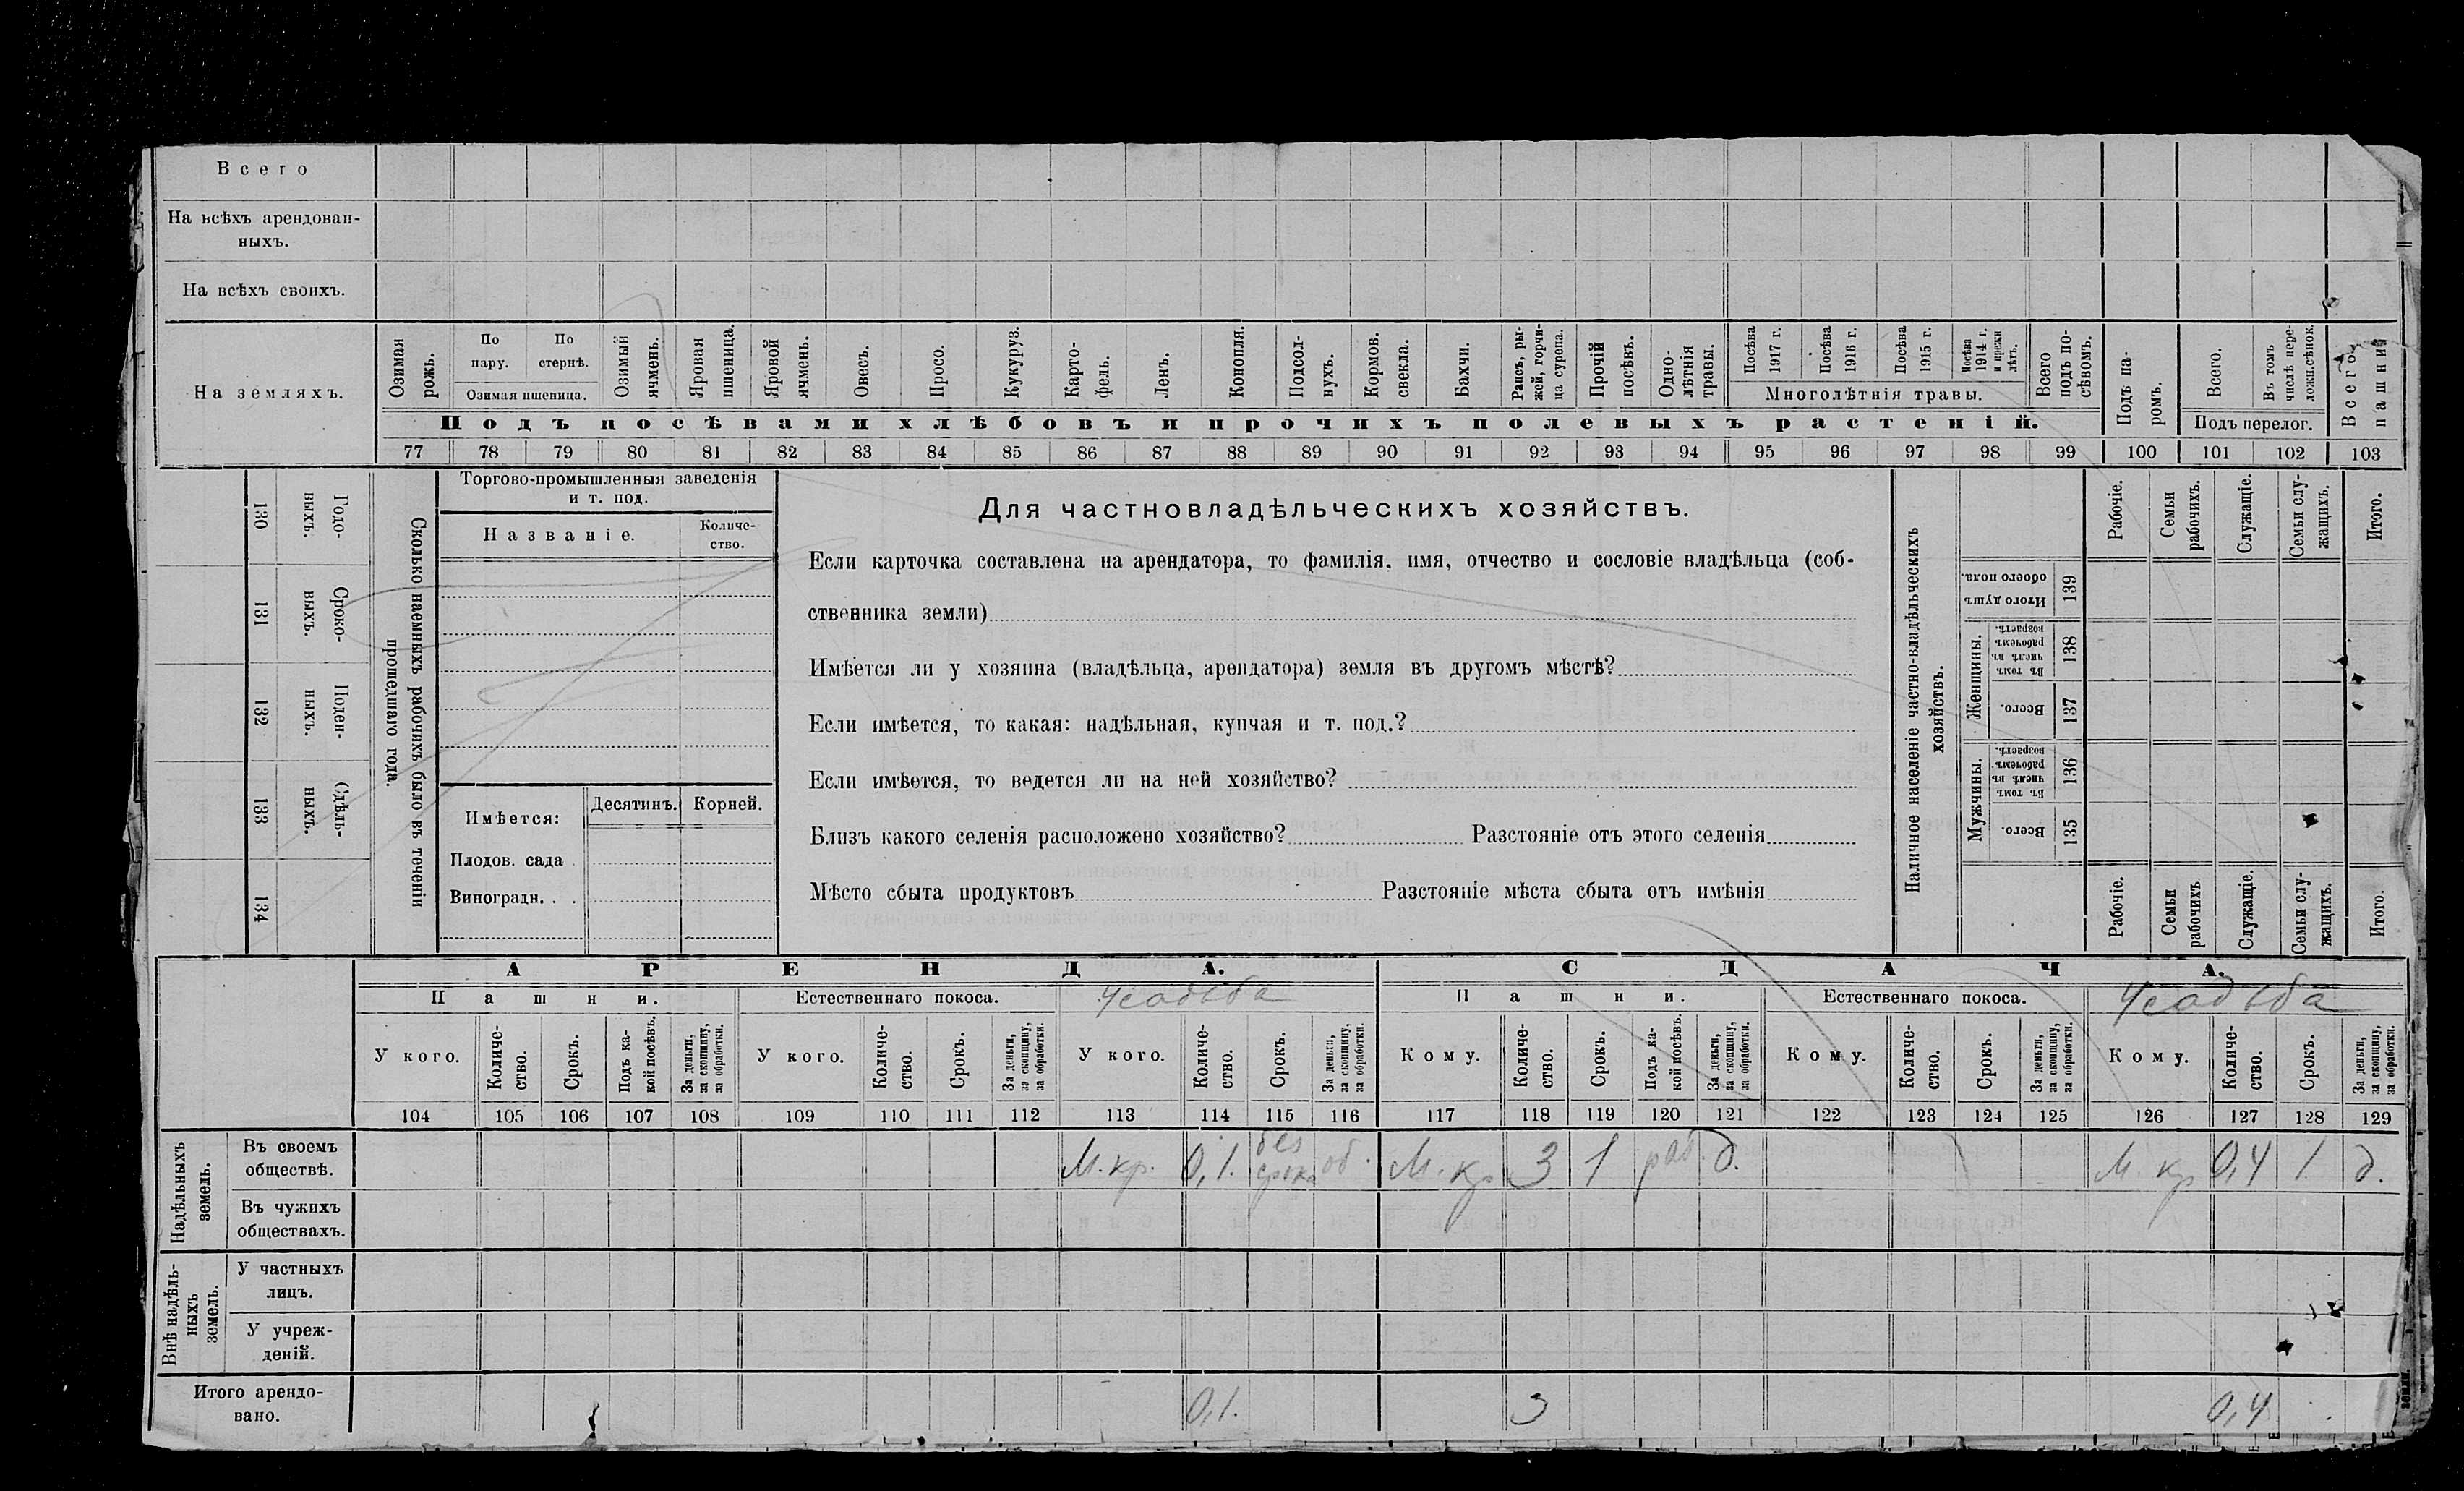 Всего
На всѣхъ арендован-
ныхъ.
На всѣхъ своихъ.
На земляхъ.
Озимая рожь.
По пару.
По стернѣ.
Озимая пшеница.
Озимый ячмень.
Яровая пшеница.
Яровой ячмень.
Овесъ.
Просо.
Кукуруз.
Карто-
фель.
Ленъ.
Конопля.
Подсол-
нухъ.
Кормов. свекла.
Бахчи.
Рапсъ, ры-
жей, горчи-
ца сурепа.
Прочій посѣвъ.
Одно-
лѣтнія травы.
Посѣва 1917 г.
Посѣва 1916 г.
Посѣва 1915 г.
Посѣва 1914 г. и прежн лѣтъ.
Многолѣтнія травы.
Всего подъ по-
сѣвомъ.
Подъ па-
ромъ.
Всего.
Въ томъ числѣ пере-
ложн.сѣнок.
Подъ перелог.
Всего пашни
Подъ посѣвами хлѣбовъ и прочихъ полевыхъ растеній.
77 78 79 80 81 82 83 84 85 86 87 88 89 90 91 92 93 94 95 96 97 98 99 100 101 102 103
130 Годо-
ныхъ.
131 Сроко-
ныхъ.
132 Поден-
ныхъ.
133 Сдѣль-
ныхъ.
134
Сколько наемныхъ рабочихъ было въ теченіи
прошедшаго года.
Торгово-промышленныя заведенія
и т. под.
Названіе.
Количе-
ство.
Имѣется:
Десятинъ.
Корней.
Плодов. сада .
Виноградн. . .
Для частновладѣльческихъ хозяйствъ.
Если карточка составлена на арендатора, то фамилія, имя, отчество и сословіе владѣльца (соб-
ственника земли)
Имѣется ли у хозяина (владѣльца, арендатора) земля въ другомъ мѣстѣ?
Если имѣется, то какая: надѣльная, купчая и т. под.?
Если имѣется, то ведется ли на ней хозяйство?
Близъ какого селенія расположено хозяйство? Разстояніе отъ этого селенія
Мѣсто сбыта продуктовъ Разстояніе мѣста сбыта отъ имѣнія
Наличное населеніе частно-владѣльческихъ
хозяйствъ.
Рабочіе.
Семьи рабочихъ.
Служащіе.
Семьи слу-
жащихъ.
Итого.
Итого душъ обоего пола. 139
Женщины.
Въ томъ числѣ въ рабочемъ возрастѣ. 138
Всего. 137
Мужчины.
Въ томъ числѣ въ рабочемъ возрастѣ. 136
Всего. 135
Рабочіе.
Семьи рабочихъ
Служащіе.
Семьи слу-
жащихъ.
Итого.
АРЕНДА.
СДАЧА.
Пашни.
Естественнаго покоса.
Усадьба
Пашни.
Естественнаго покоса.
Усадьба
У кого.
Количе-
ство.
Срокъ.
Подъ ка-
кой посѣвъ.
За деньги, за скопщину, за обработки.
У кого.
Количе-
ство.
Срокъ.
За деньги, за скопщину, за обработки.
У кого.
Количе-
ство.
Срокъ.
За деньги, за скопщину, за обработки.
Кому.
Количе-
ство.
Срокъ.
Подъ ка-
кой посѣвъ.
За деньги, за скопщину, за обработки.
Кому.
Количе-
ство.
Срокъ.
За деньги, за скопщину, за обработки.
Кому.
Количе-
ство.
Срокъ.
За деньги, за скопщину, за обработки.
104 105 106 107 108 109 110 111 112 113 114 115 116 117 118 119 120 121 122 123 124 125 126 127 128 129
Надѣльныхъ земель.
Въ своемъ
обществѣ.
М. кр. 0,1. без срока об. М. кр 3 1 раб. д. М. кр 0,4 1 д.
Въ чужихъ
обществахъ.
Внѣ надѣль-
ныхъ земель.
У частныхъ
лицъ.
У учреж-
деній.
Итого арендо-
вано.
0,1. 3 0,4